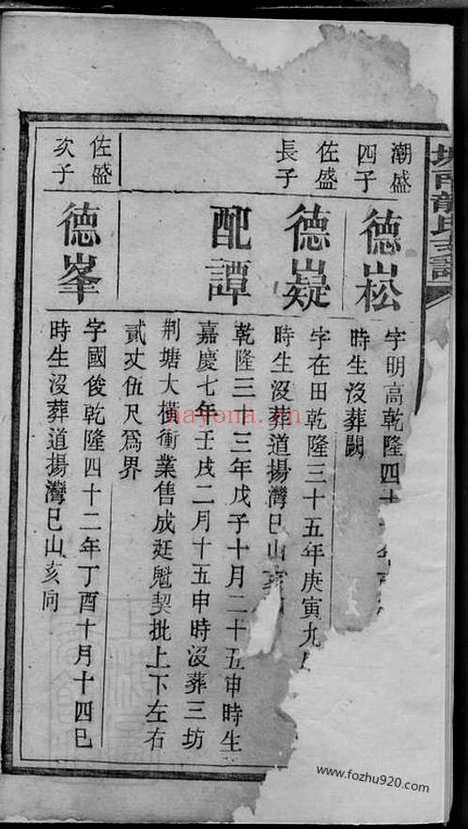 龍氏支譜
潮盛
四子
德崧
字明高乾隆四十
時生沒葬闕
佐盛
長子
德嶷
字在田乾隆三十五年庚寅九
時生沒葬道揚灣巳山亥
配譚
乾隆三十三年戊子十月二十五申時生
嘉慶七年壬戌二月十五申時沒葬三坊
荆塘大橫衝業售成廷魁契批上下左右
貳丈伍尺爲界
佐盛
次子
德峯
字國俊乾隆四十二年丁酉十月十四巳
時生沒葬道揚灣巳山亥向
nayona.cn
www.fozhu920.com